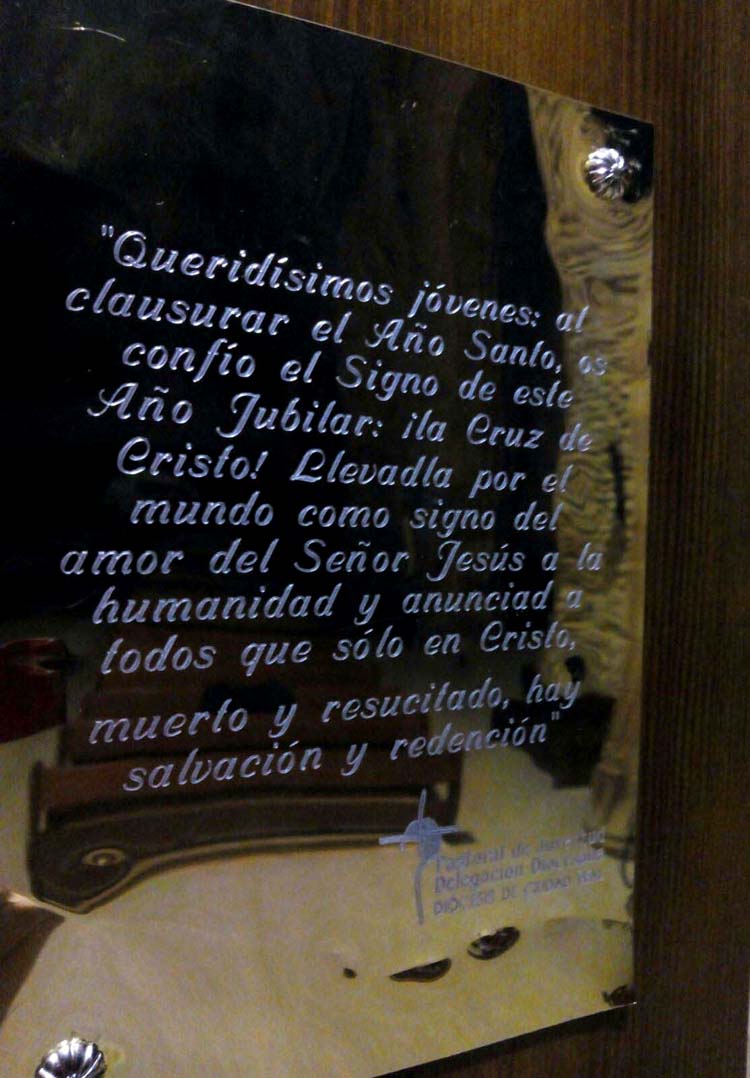 "Queridísimos jóvenes: al
clausurar el Año Santo, os
confío el Signo de este
Año Jubilar: ¡la Cruz de
Cristo! Llevadla por el
mundo como signo del
amor del Señor Jesús a la
humanidad y anunciad a
todos que sólo en Cristo,
muerto y resucitado, hay
salvación y redención"
Pastoral de Juventud
Delegación Diocesana
DIÓCESIS DE CIUDAD REAL